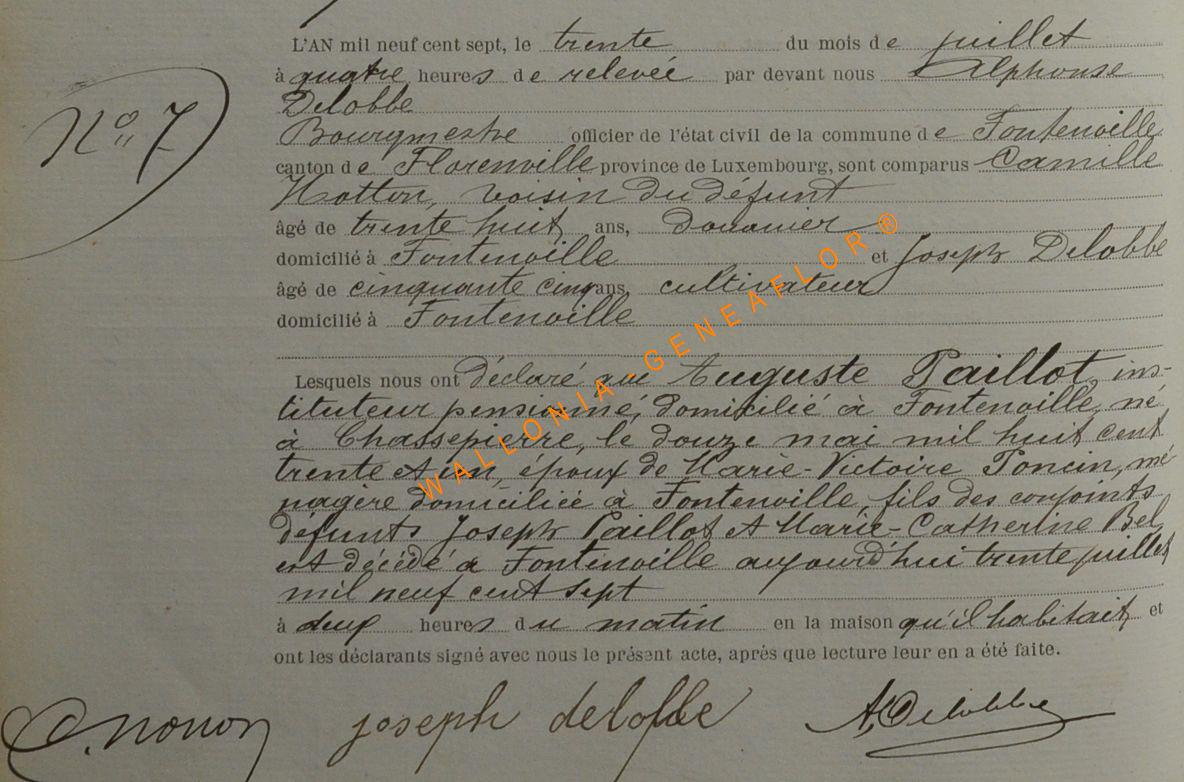 L'AN mil neuf cent sept, le trente du mois de juillet
à quatre heures de relevée par devant nous Alphonse
Delobbe
N° 7
Bourgmestre officier de l'état civil de la commune de Fontenoille
canton de Florenville province de Luxembourg, sont comparus Camille
Hotton, voisin du défunt
âgé de trente huit ans, douanier
domicilié à Fontenoille et Joseph Delobbe
âgé de cinquante cinq ans, cultivateur
domicilié à Fontenoille
Lesquels nous ont déclaré que Auguste Paillot, ins-
tituteur pensionné, domicilié à Fontenoille, né
à Chassepierre, le douze mai mil huit cent
trente et un, époux de Marie-Victoire Poncin, mé
nagère domiciliée à Fontenoille, fils des conjoints
défunts Joseph Paillot et Marie-Catherine Bel
est décédé à Fontenoille aujourd'hui trente juillet
mil neuf cent sept
à deux heures du matin en la maison qu'il habitait, et
ont les déclarants signé avec nous le présent acte, après que lecture leur en a été faite.
joseph delobbe A. Delobbe
WALLONIA-GENEAFLOR®